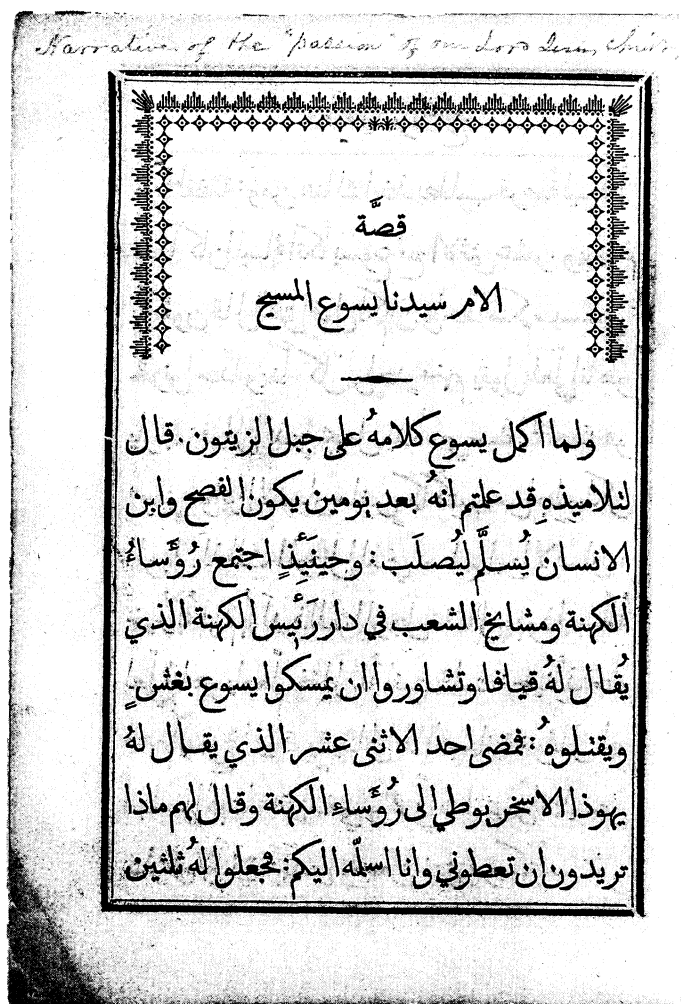 Narrative of the "passion" of our Lord Jesus Christ
قصَّة
الام سيدنا يسوع المسيح
ولما اكمل يسوع كلامهُ على جبل الزيتون. قال
لتلاميذهِ قد علمتم انهُ بعد يومين يكون الفصح وابن
الانسان يُسلَّم ليُصلَب: وحينَئِذٍ اجتمع رُؤَساءُ
الكهنة ومشايخ الشعب في دار رَئِيس الكهنة الذي
يُقال لهُ قيافا وتشاوروا ان يمسكوا يسوع بغشٍ
ويقتلوهُ: فمضى احد الاثنى عشر الذي يقال لهُ
يهوذا الاسخريوطي الى رُؤَساءِ الكهنة وقال لهم ماذا
تريدون ان تعطوني وانا اسلّمه اليكم: فجعلوا لهُ ثلثين